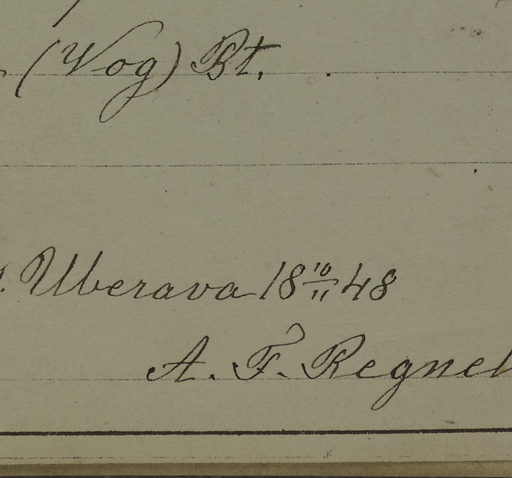 (Vog) Bt.
Uberava 18 10/11 48
A. F. Regnel